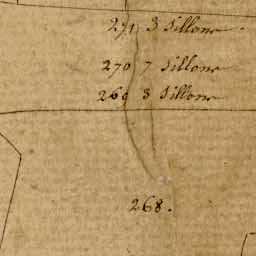 271 3 Sillons.
270 7 Sillons
269 3 Sillons
268.